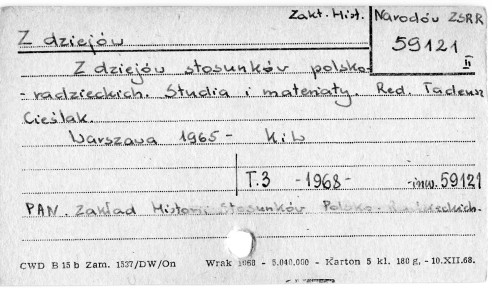 Zakł. Hist. Narodów ZSRR
Z dziejów
59121
II
Z dziejów stosunków polsko-
-radzieckich. Studia i materiały. Red. Tadeusz
Cieślak.
Warszawa 1965- KiW
T.3 -1968- -inw. 59121
PAN. Zakład Historii Stosunków Polsko-Radzieckich.
CWD B 15 b Zam. 1537/DW/On Wrak 1968 - 5.040.000 - Karton 5 kl. 180 g, - 10.XII.68.